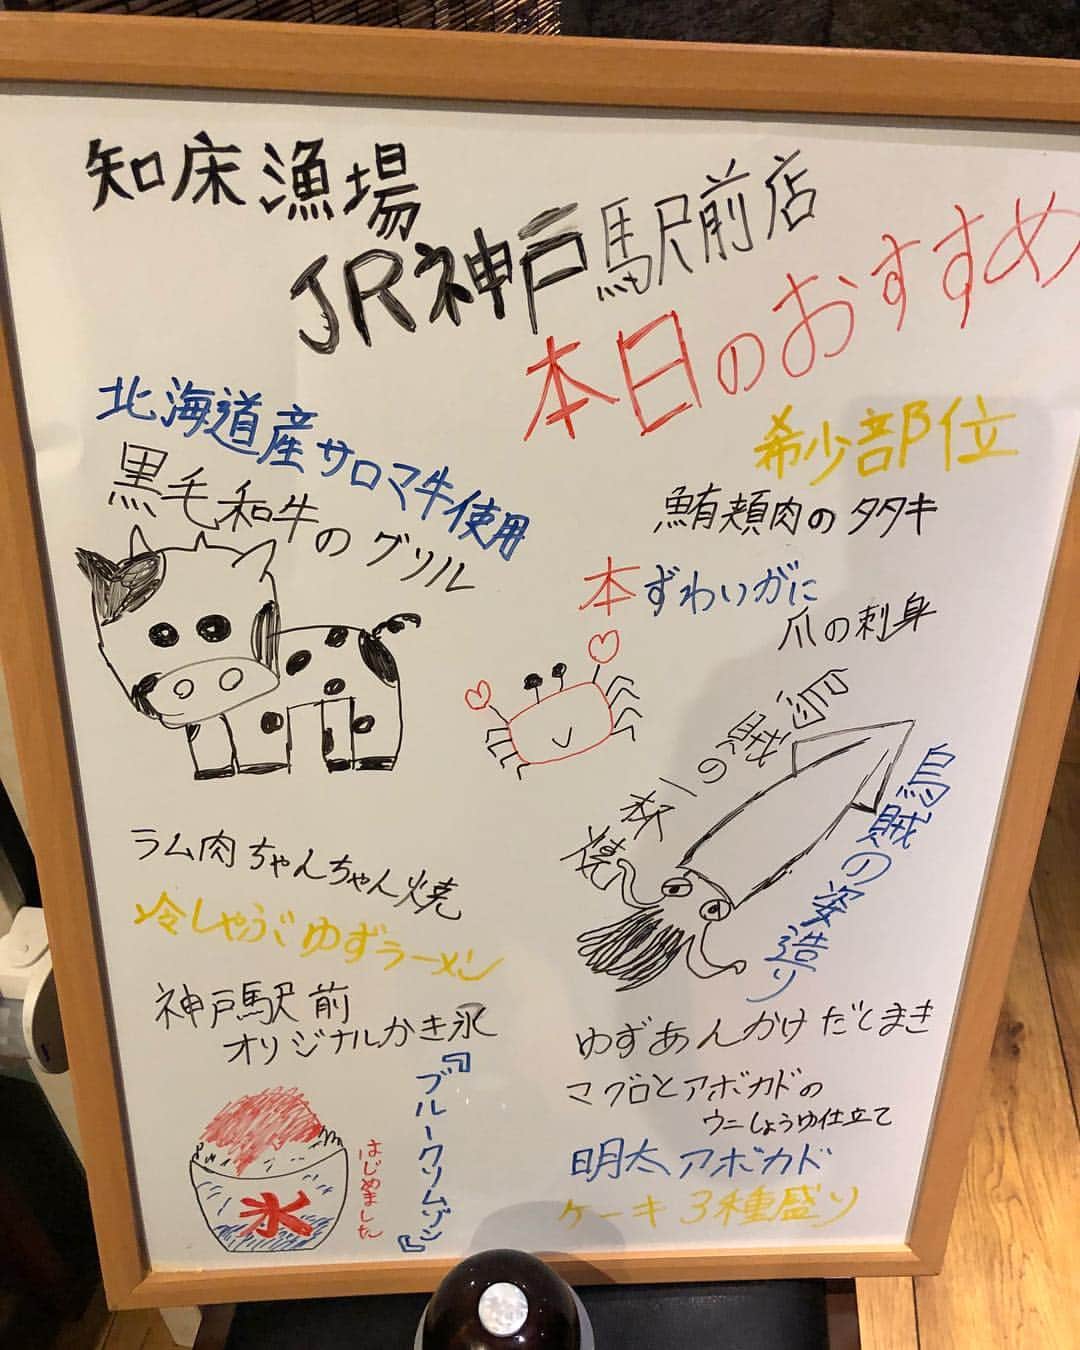 知床漁場
JR神戸駅前店
本日のおすすめ
北海道産サロマ牛使用
黒毛和牛のグリル
希少部位
鮪頬肉のタタキ
本ずわいがに
爪の刺身
烏賊の一本焼
烏賊の姿造り
ラム肉ちゃんちゃん焼
冷しゃぶゆずラーメン
神戸駅前
オリジナルかき氷
『ブルークリムゾン』
はじめました
氷
ゆずあんかけだしまき
マグロとアボカドの
ウニしょうゆ仕立て
明太アボカド
ケーキ3種盛り